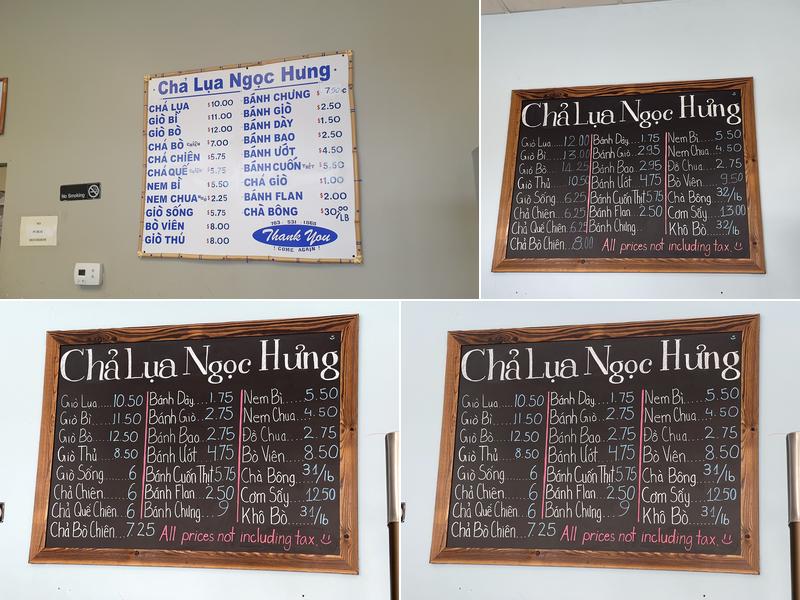 Chả Lụa Ngọc Hưng
CHẢ LỤA $10.00
GIÒ BÌ $11.00
GIÒ BÒ $12.00
CHẢ BÒ CHIÊN $7.00
CHẢ CHIÊN $5.75
CHẢ QUẾ CHIÊN $5.75
NEM BÌ $5.50
NEM CHUA $2.25
GIÒ SỐNG $5.75
BÒ VIÊN $8.00
GIÒ THỦ $8.00
BÁNH CHƯNG
BÁNH GIÒ $2.50
BÁNH DÀY $1.50
BÁNH BAO $2.50
BÁNH ƯỚT $4.50
BÁNH CUỐN THỊT $5.50
CHẢ GIÒ $1.00
BÁNH FLAN $2.00
CHÀ BÔNG $30.00/LB
763 - 531 - 1868
Thank You
! COME AGAIN !
No Smoking
Chả Lụa Ngọc Hưng
Giò Lụa.....12.00
Giò Bì.....13.00
Giò Bò.....14.25
Giò Thủ.....10.50
Giò Sống.....6.25
Chả Chiên.....6.25
Chả Quế Chiên.....6.25
Chả Bò Chiên...8.00
Bánh Dày....1.75
Bánh Giò...2.95
Bánh Bao...2.95
Bánh Ướt...4.75
Bánh Cuốn Thịt 5.75
Bánh Flan...2.50
Bánh Chưng...
Nem Bì.....5.50
Nem Chua...4.50
Đồ Chua....2.75
Bò Viên.....9.50
Chà Bông 32/lb
Cơm Sấy.....13.00
Khô Bò......32/lb
All prices not including tax.
Chả Lụa Ngọc Hưng
Giò Lụa.....10.50
Giò Bì.....11.50
Giò Bò.....12.50
Giò Thủ.....8.50
Giò Sống.....6
Chả Chiên.....6
Chả Quế Chiên...6
Chả Bò Chiên...7.25
Bánh Dày....1.75
Bánh Giò...2.75
Bánh Bao...2.75
Bánh Ướt...4.75
Bánh Cuốn Thịt 5.75
Bánh Flan...2.50
Bánh Chưng...9
Nem Bì.....5.50
Nem Chua...4.50
Đồ Chua....2.75
Bò Viên.....8.50
Chà Bông 31/lb
Cơm Sấy.....12.50
Khô Bò......31/lb
All prices not including tax.
Chả Lụa Ngọc Hưng
Giò Lụa.....10.50
Giò Bì.....11.50
Giò Bò.....12.50
Giò Thủ.....8.50
Giò Sống.....6
Chả Chiên.....6
Chả Quế Chiên...6
Chả Bò Chiên...7.25
Bánh Dày....1.75
Bánh Giò...2.75
Bánh Bao...2.75
Bánh Ướt...4.75
Bánh Cuốn Thịt 5.75
Bánh Flan...2.50
Bánh Chưng...9
Nem Bì.....5.50
Nem Chua...4.50
Đồ Chua....2.75
Bò Viên.....8.50
Chà Bông 31/lb
Cơm Sấy.....12.50
Khô Bò......31/lb
All prices not including tax.